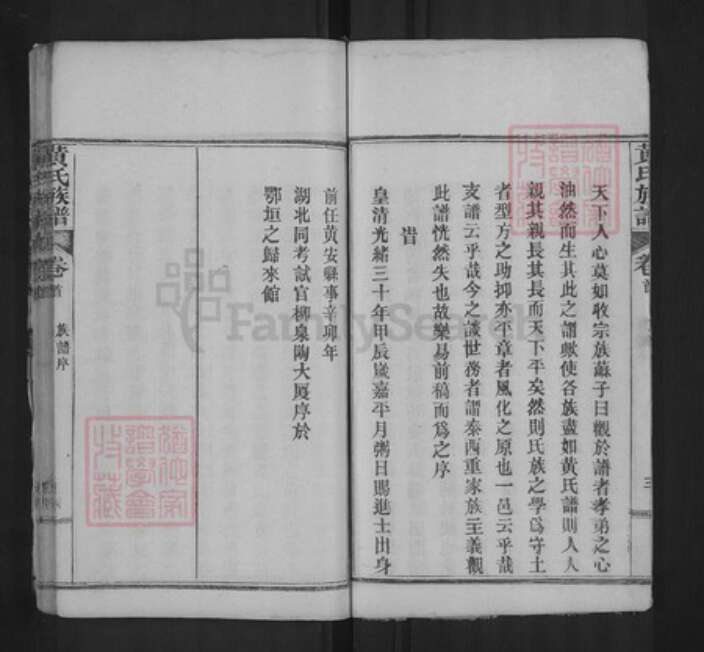 黃氏族譜
卷首
三
天下人心莫如收宗族蘇子曰觀於譜者孝弟之心
油然而生其此之謂歟使各族盡如黃氏譜則人人
親其親長其長而天下平矣然則氏族之學爲守土
者型方之助抑亦平章者風化之原也一邑云乎哉
支譜云乎哉今之談世務者謂泰西重家族主義觀
此譜恍然失也故樂易前稿而爲之序
旹
皇清光緒三十年甲辰嵗嘉平月粥日賜進士出身
前任黃安縣事辛卯年
湖北同考試官柳泉陶大夏序於
鄂垣之歸來館
黃氏族譜
卷首
族譜序
FamilySearch